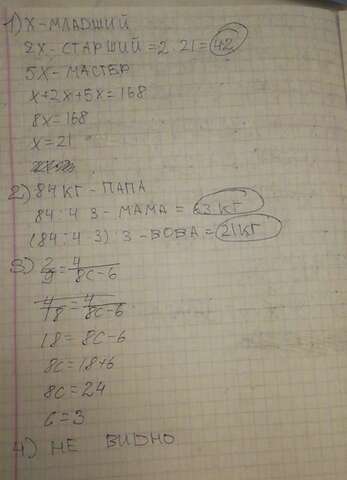 1) X-МЛАДШИЙ
2X-СТАРШИЙ=2·21=42
5X-МАСТЕР
X+2X+5X=168
8X=168
X=21
2) 84 КГ-ПАПА
84:4·3-МАМА=63 КГ
(84:4·3):3-ВОВА=21КГ
3) 2/9=4/8C-6
4/18=4/8C-6
18=8C-6
8C=18+6
8C=24
C=3
4) НЕ ВИДНО